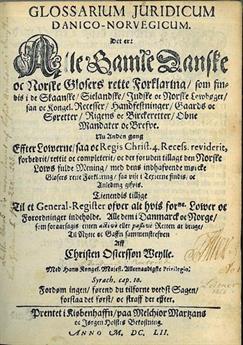 GLOSSARIUM JURIDICUM
DANICO-NORVEGICUM.
Det er:
Alle Gamle Danske
oc Norske Glosers rette Forklaring / som fin-
dis i de Skaanske / Sielandske / Judske oc Norske Lowbøger /
saa oc Kongel. Recesser / Handfestninger / Gaards oc
Søretter / Rigens oc Birckeretter / Obne
Mandater oc Brefve.
Nu Anden gang
Effter Lowerne / saa oc Regis Christ. 4. Recess. reviderit,
forbedrit / rettit oc completerit / oc der foruden tillagt den Norske
Lows fulde Mening / med dens indhafvende mørcke
Glosers rette Forklaring / saa vijt i Texterne findis, oc
Anledning gifvis.
Tienendis tillige
Til et General-Register ofver alt hvis Lower oc
Forordninger indeholde. Alle dem i Danmarck oc Norge /
som foraarsagis enten activè eller passivè Retten at bruge /
Til Nytte oc Gafn sammenskrefven
Aff
Christen Ostersøn Weylle.
Med Hans Kongel. Majest. Allernaadigste Privilegio.
Syrach. cap. 10.
Fordøm ingen / førend du tilforne veedst Sagen /
forstaa det først / oc straff der effter.
Prentet i Kiøbenhaffn / paa Melchior Martzans
oc Jørgen Holstes Bekostning.
ANNO M DC LII.